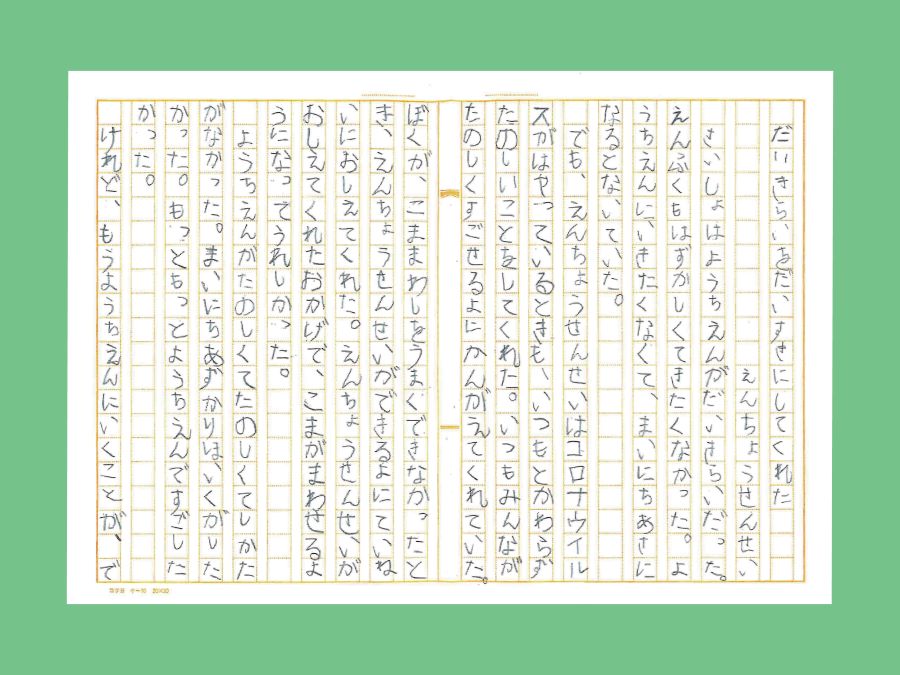 だいきらいをだいすきにしてくれた
えんちょうせんせい
さいしょはようちえんがだいきらいだった。
えんふくもはずかしくてきたくなかった。よ
うちえんにいきたくなくて、まいにちあさに
なるとないていた。
でも、えんちょうせんせいはコロナウイル
スがはやっているときも、いつもとかわらず
たのしいことをしてくれた。いつもみんなが
たのしくすごせるよにかんがえてくれていた。
ぼくが、こままわしをうまくできなかったと
き、えんちょうせんせいができるよにていね
いにおしえてくれた。えんちょうせんせいが
おしえてくれたおかげで、こまがまわせるよ
うになってうれしかった。
ようちえんがたのしくてたのしくてしかた
がなかった。まいにちあずかりほいくがした
かった。もっともっとようちえんですごした
かった。
けれど、もうようちえんにいくことが、で